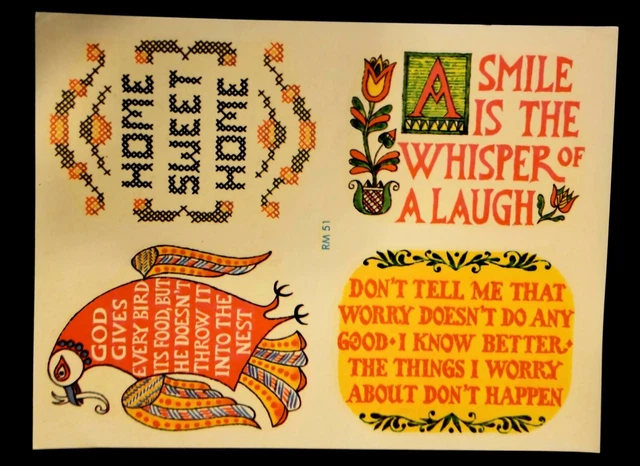 HOME
SWEET
HOME
A SMILE
IS THE
WHISPER OF
A LAUGH
RM 51
GOD
GIVES
EVERY BIRD
ITS FOOD, BUT
HE DOESN'T
THROW IT
INTO THE
NEST
DON'T TELL ME THAT
WORRY DOESN'T DO ANY
GOOD • I KNOW BETTER •
THE THINGS I WORRY
ABOUT DON'T HAPPEN